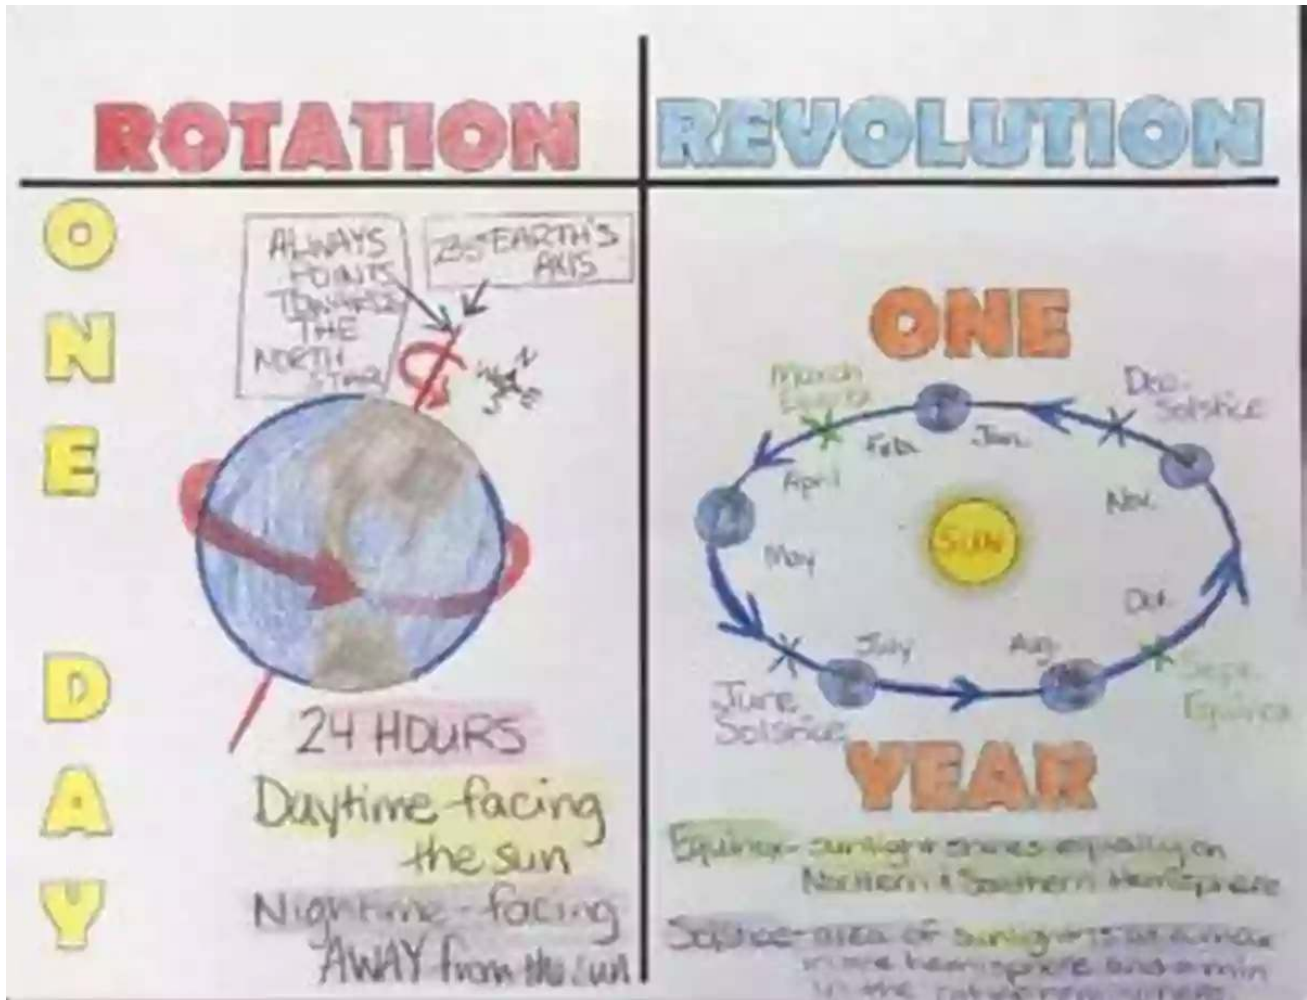 ROTATION
ONE DAY
ALWAYS
POINTS
TOWARDS
THE
NORTH
STAR
EARTH'S
AXIS
N
E
S
W
24 HOURS
Daytime-facing
the sun
Nightime-facing
AWAY from the sun
REVOLUTION
ONE
March
Equinox
Dec.
Solstice
Feb.
Jan.
April
Nov.
SUN
May
Oct.
July
Aug.
June
Solstice
Sept.
Equinox
YEAR
Equinox- sunlight shines equally on
Northern & Southern Hemisphere
Solstice- area of sunlight is at a max
in one hemisphere and a min
in the